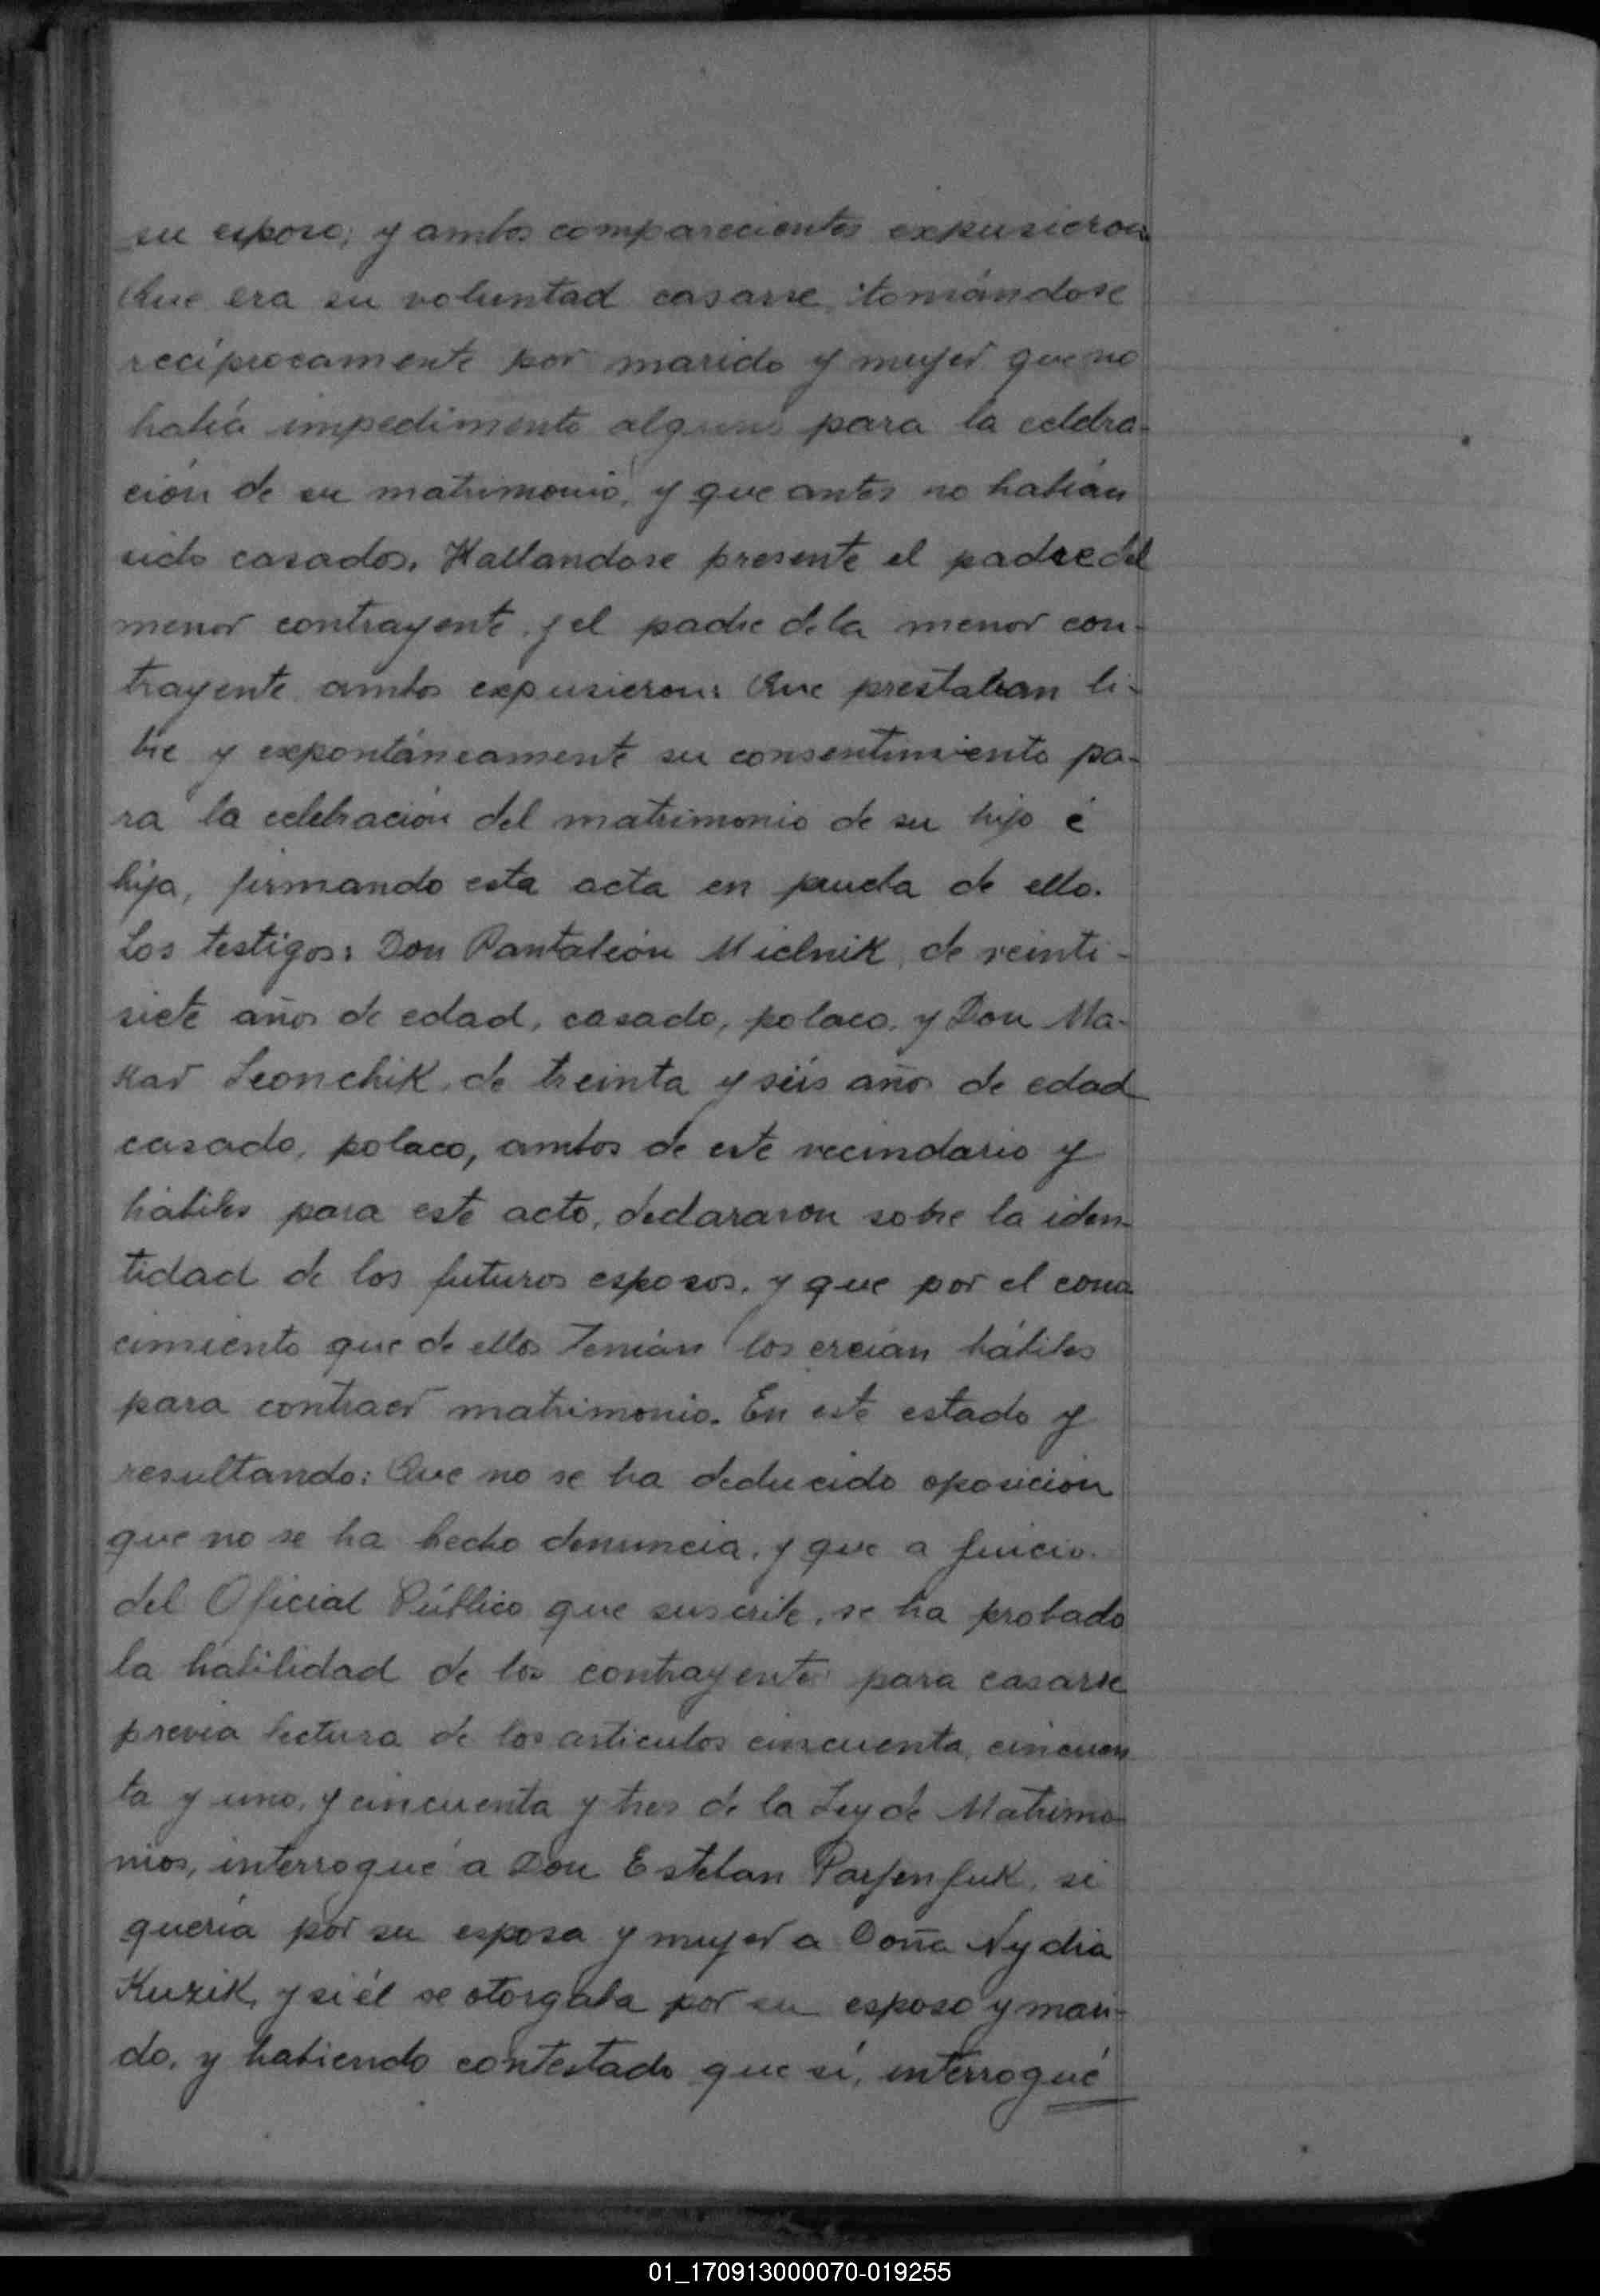 su esposo; y ambos comparecientes expusieron
Que era su voluntad casarse, tomándose
recíprocamente por marido y mujer que no
había impedimento alguno para la celebra-
ción de su matrimonio, y que antes no habían
sido casados. Hallandose presente el padre del
menor contrayente y el padre de la menor con-
trayente ambos expusieron: Que prestaban li-
bre y expontáneamente su consentimiento pa-
ra la celebración del matrimonio de su hijo é
hija, firmando esta acta en prueba de ello.
Los testigos: Don Pantaleón Mielnik, de veinti-
siete años de edad, casado, polaco, y Don Ma-
kar Leonchik, de treinta y séis años de edad
casado, polaco, ambos de este vecindario y
hábiles para este acto, declararon sobre la iden-
tidad de los futuros esposos, y que por el cono
cimiento que de ellos Tenían los creían hábiles
para contraer matrimonio. En este estado y
resultando: Que no se ha deducido oposición
que no se ha hecho denuncia, y que a juicio
del Oficial Público que suscribe, se ha probado
la habilidad de los contrayentes para casarse
previa lectura de los articulos cincuenta, cincuen
ta y uno, y cincuenta y tres de la Ley de Matrimo
nios, interrogué a Don Esteban Parfenjuk, si
quería por su esposa y mujer a Doña Nydia
Kuzik, y si él se otorgaba por su esposo y mari-
do, y habiendo contestado que sí, interrogué
01_170913000070-019255